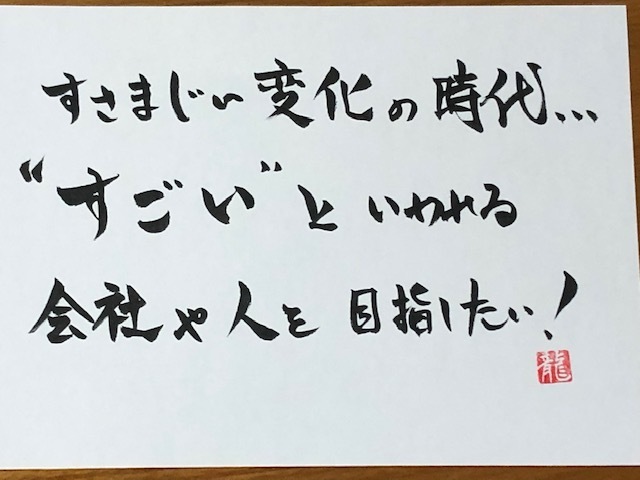 すさまじい変化の時代…
“すごい”といわれる
会社や人を目指したい！
龍